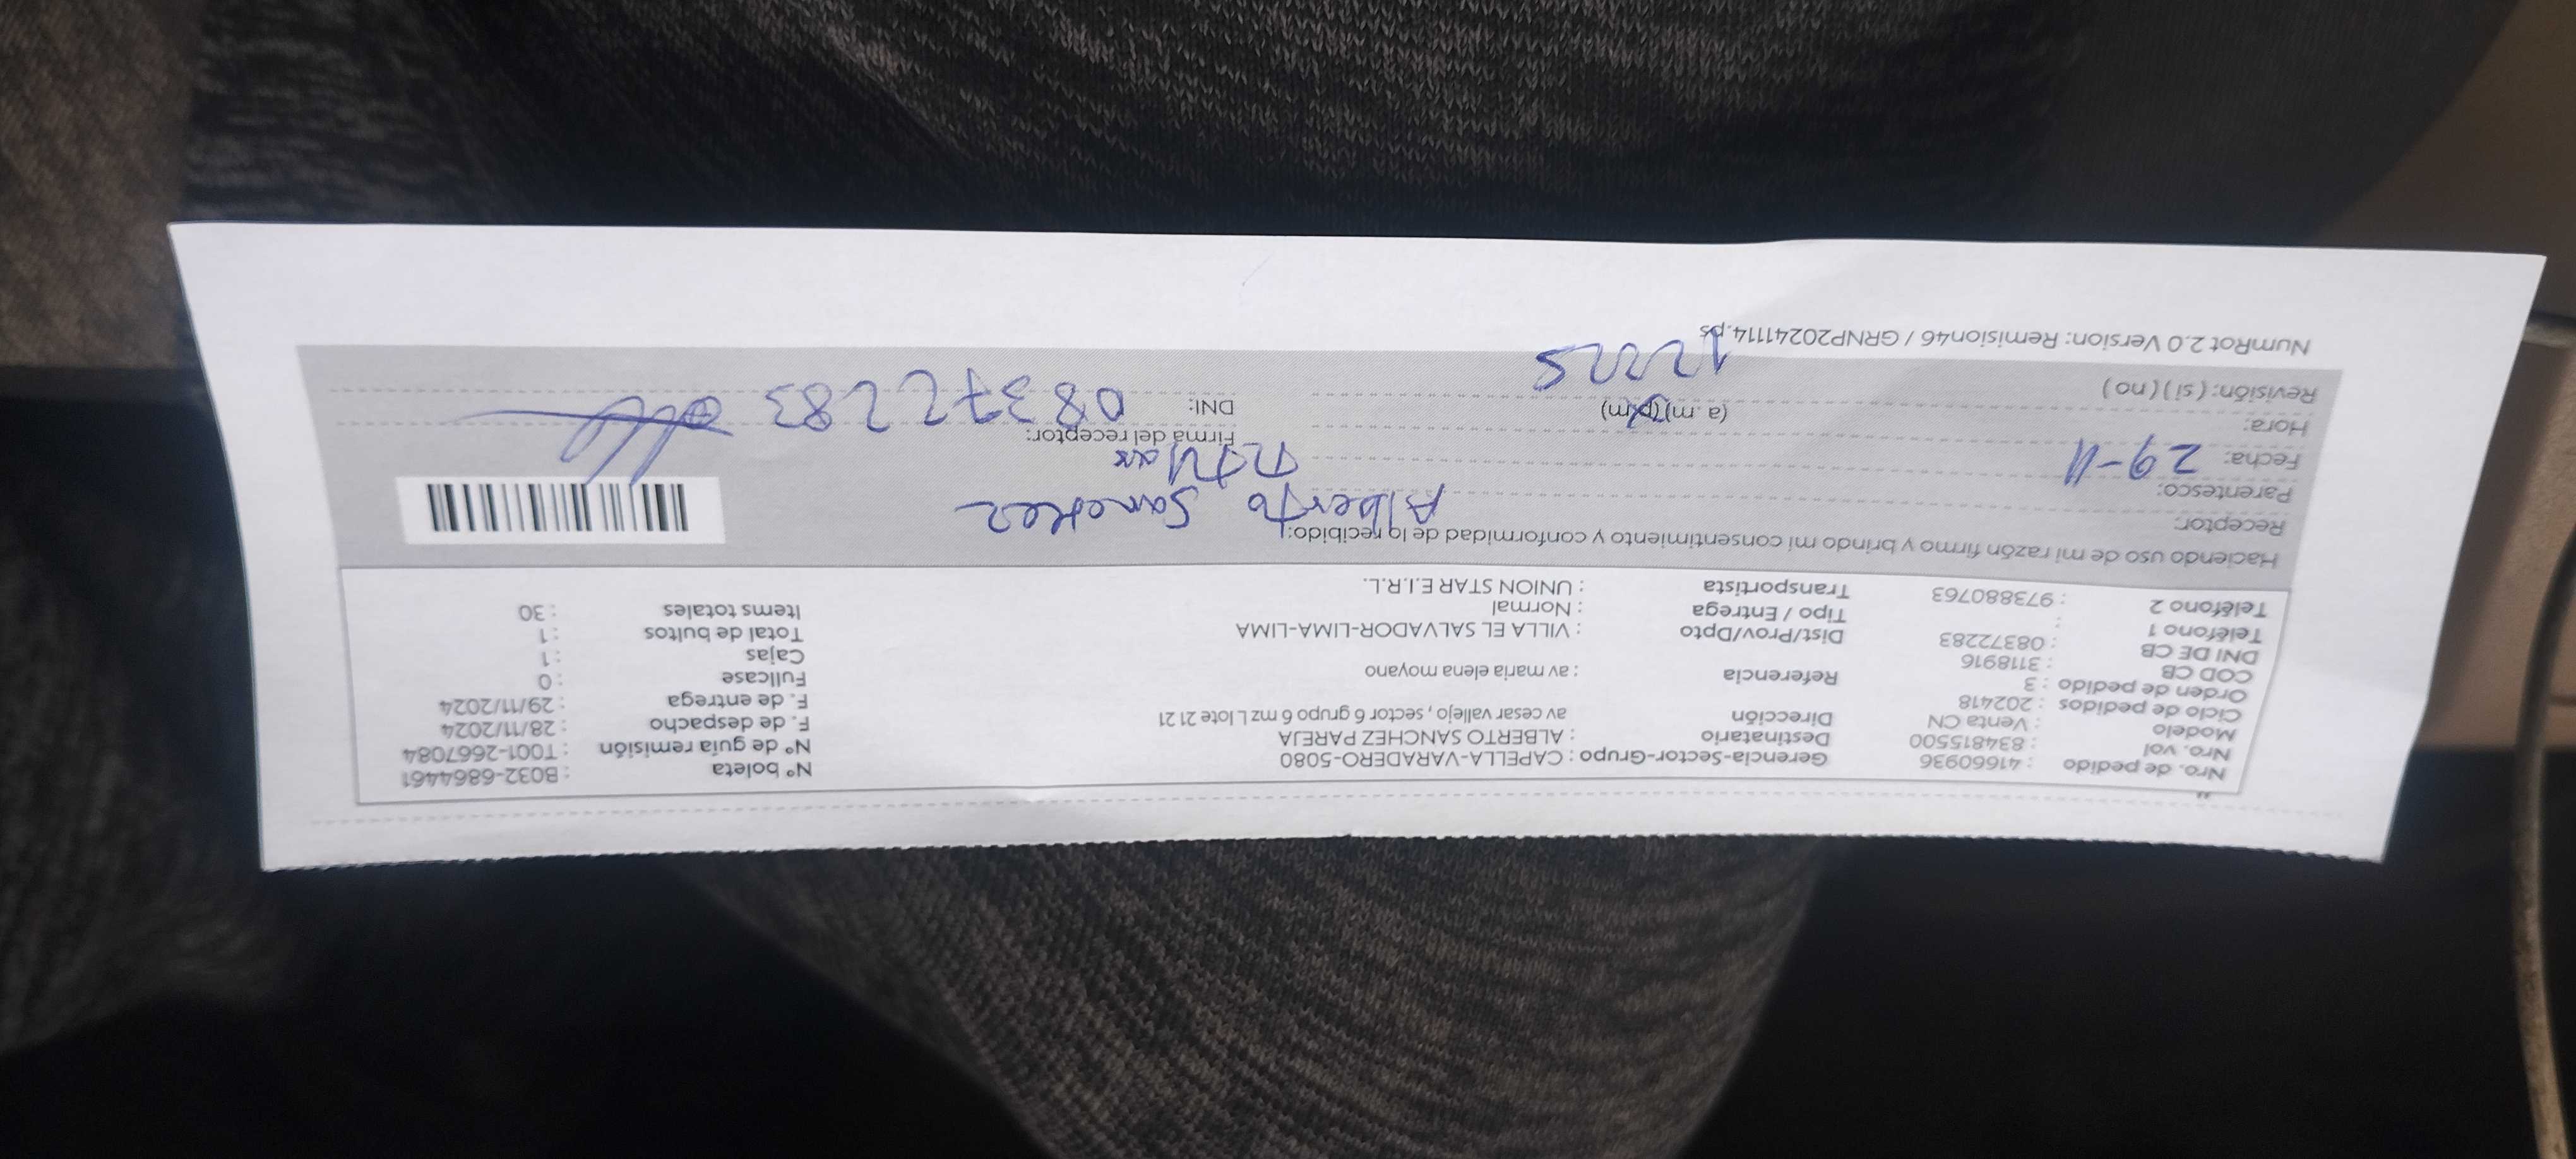 Nro. de pedido : 41660936 Gerencia-Sector-Grupo : CAPELLA-VARADERO-5080 N° boleta : B032-6864461
Nro. vol : 834815500 Destinatario : ALBERTO SANCHEZ PAREJA N° de guía remisión : T001-2667084
Modelo : Venta CN Dirección av cesar vallejo , sector 6 grupo 6 mz L lote 21 21 F. de despacho : 28/11/2024
Ciclo de pedidos : 202418 F. de entrega : 29/11/2024
Orden de pedido : 3 Referencia : av maria elena moyano Fullcase : 0
COD CB : 3118916 Cajas : 1
DNI DE CB : 08372283 Dist/Prov/Dpto : VILLA EL SALVADOR-LIMA-LIMA Total de bultos : 1
Teléfono 1 : Tipo / Entrega : Normal Items totales : 30
Teléfono 2 : 973880763 Transportista : UNION STAR E.I.R.L.
Haciendo uso de mi razón firmo y brindo mi consentimiento y conformidad de lo recibido:
Receptor: Alberto Sanchez
Parentesco:
Fecha: 29-11 Firma del receptor:
Hora: (a. m) (p.m) DNI: 08372283
Revisión: ( si ) ( no )
NumRot 2.0 Version: Remision46 / GRNP20241114.ps